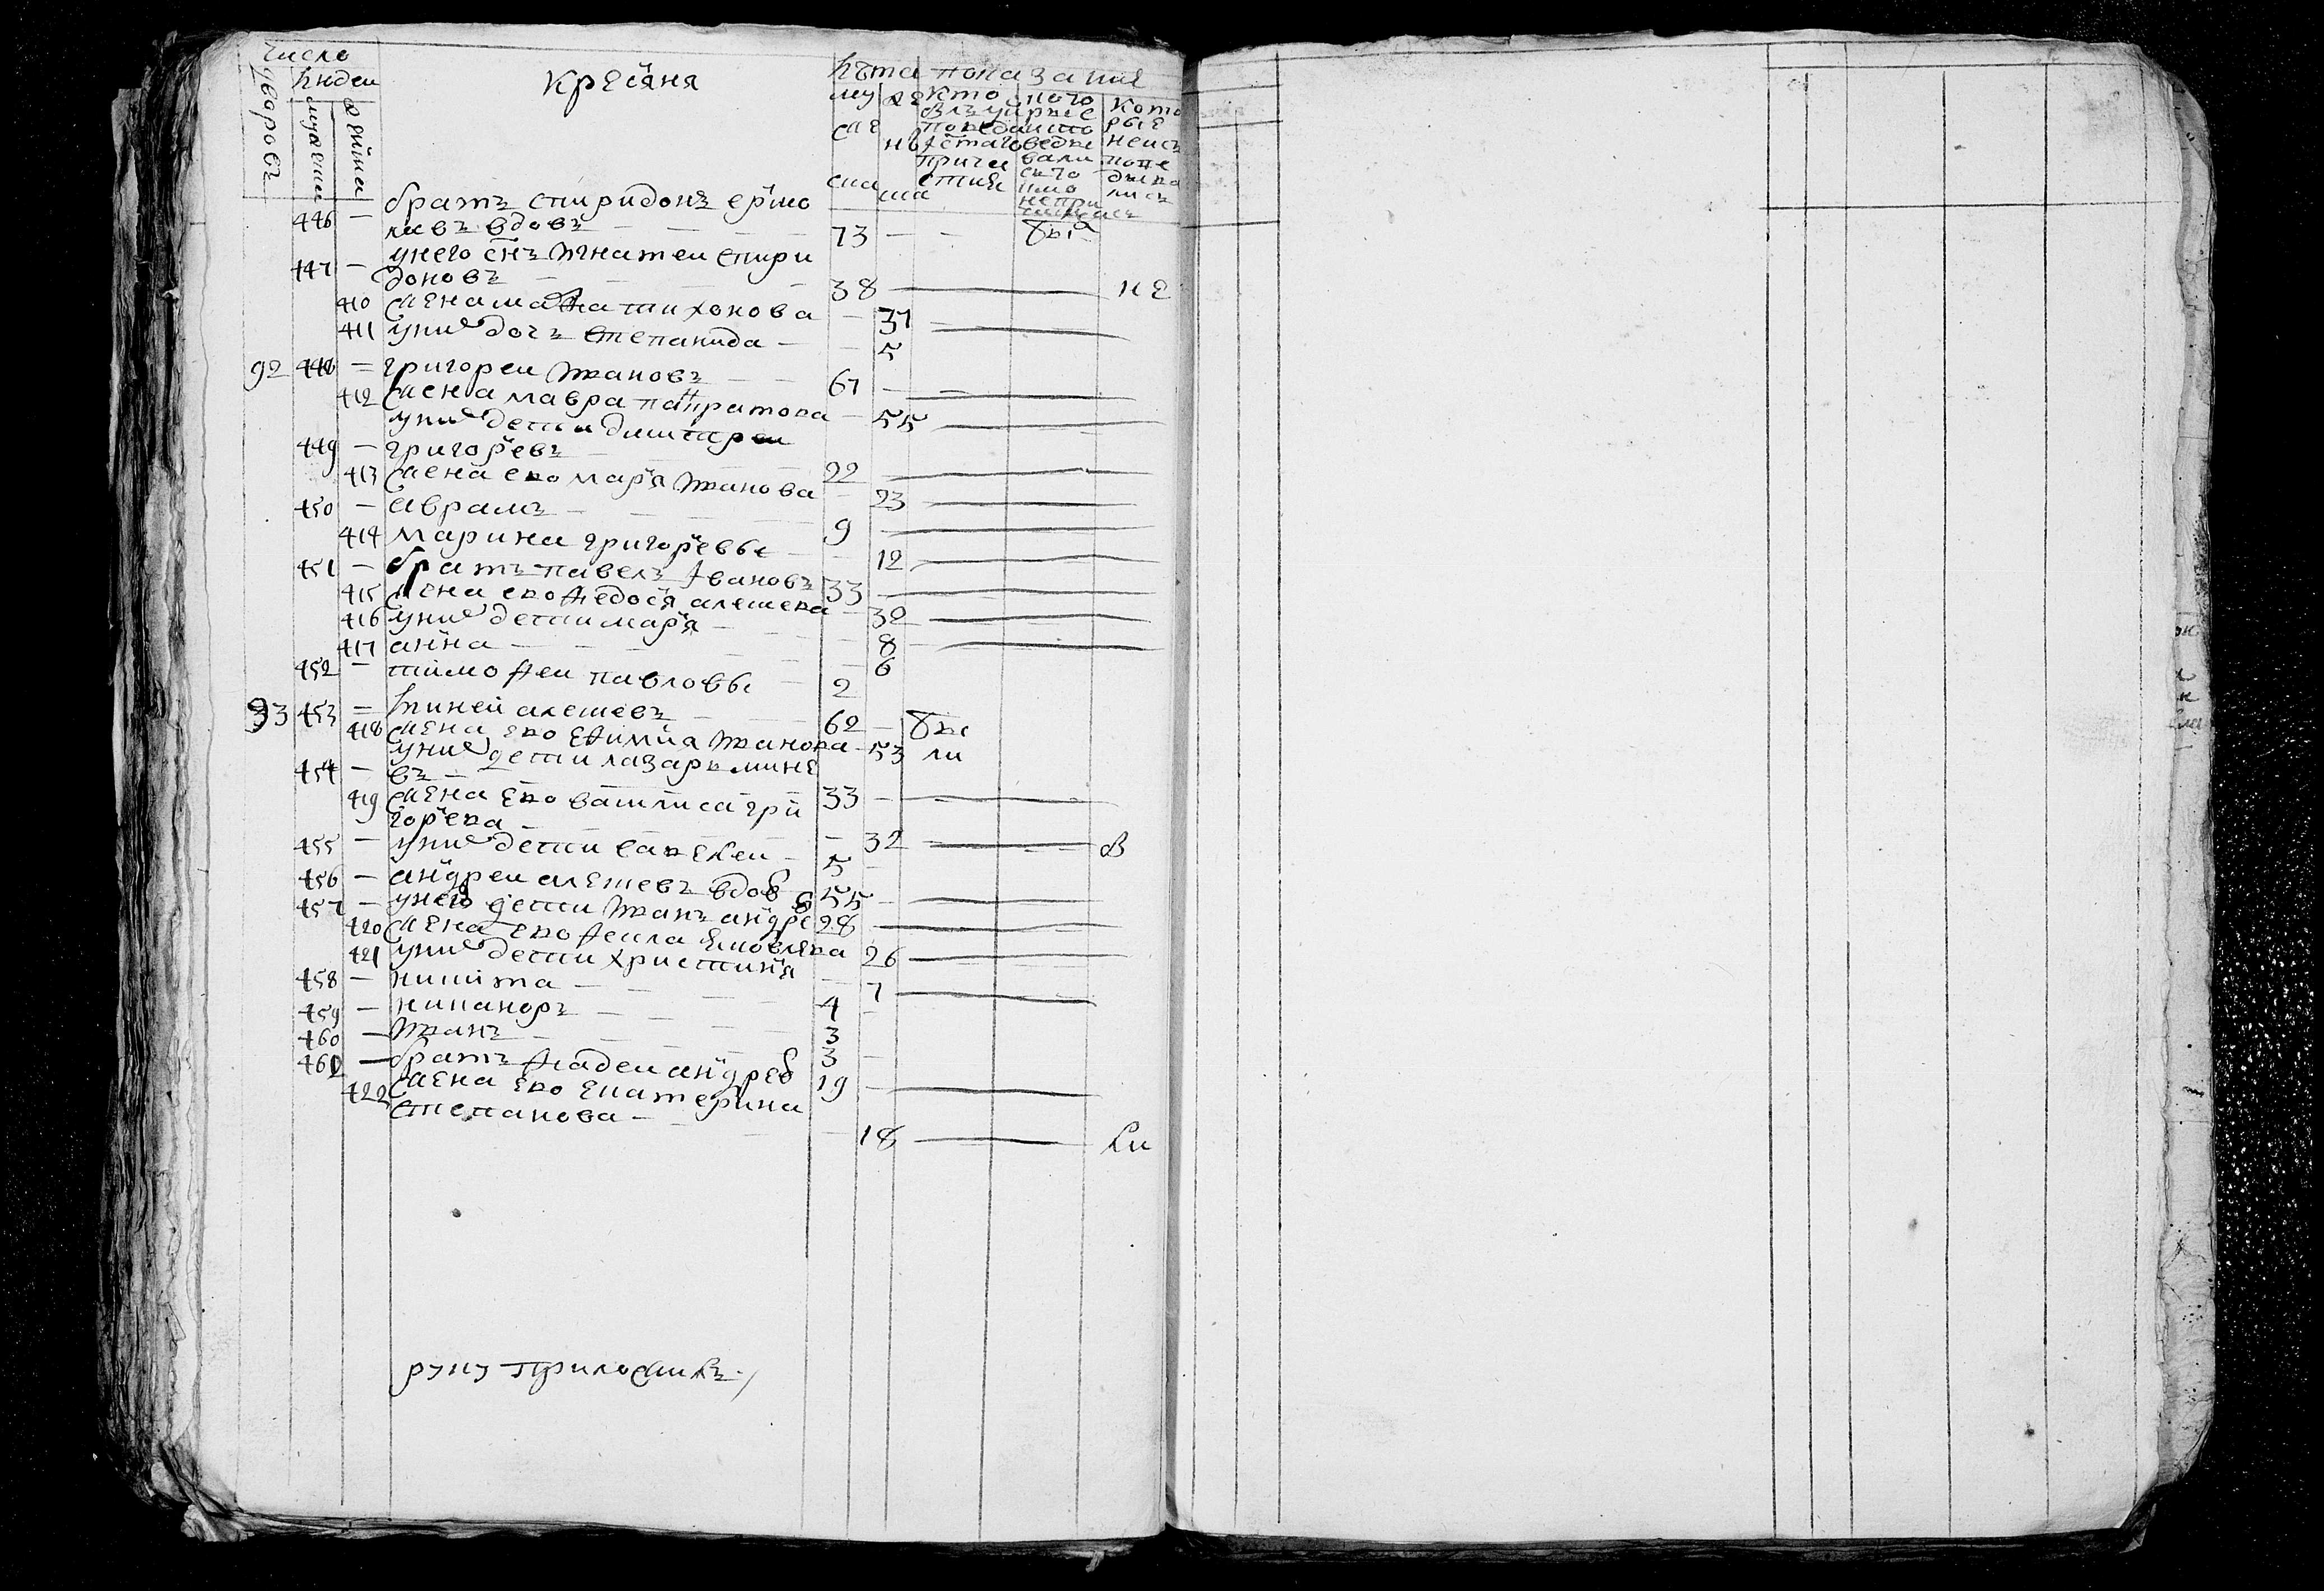 число
дворовъ
людеи
мужеска
женска
крестяня
лѣта
показание
мужеска
женска
кто былъ у исповеди и святаго причастия
кто исповедывался а кто не причащался
которые не исповедывались
братъ спиридонъ ермо
446 — лаевъ вдовъ — 73 — — была
у него снъ игнатеи спири
447 — доновъ — 38 — не
410 жена марфа тихонова — 37
411 у них дочь степанида — — 5
92 448 — григореи ивановъ — 67 —
412 жена мавра панкратова — 55
у них дети димитреи
449 — григоревъ — 22
413 жена ево маря иванова — 23
450 — аврамъ — 9
414 марина григоревы — 12
451 — братъ павелъ ивановъ 33
415 жена ево федося алеѯеева — 32
416 у них дети маря — 8
417 анна — — 6
452 — тимофеи павловы — 2
93 453 — минеи алеѯеевъ — 62 — бы
418 жена ево ефимия иванова — 53 ли
у них дети лазарь мине
454 — въ — 33 —
419 жена ево василиса гри
горева — 32 — в
455 — у них дети савелеи — 5 —
456 — андреи алеѯеевъ вдов 55 —
457 — у него дети иванъ андрев 28
420 жена ево фекла яковлева 26
421 у них дети христиня — 7
458 — никита — 4 —
459 — никаноръ — 3
460 — иванъ — 3 —
461 — братъ фадеи андрев 19 —
422 жена ево екатерина
степанова — — 18 — ли
руку приложилъ